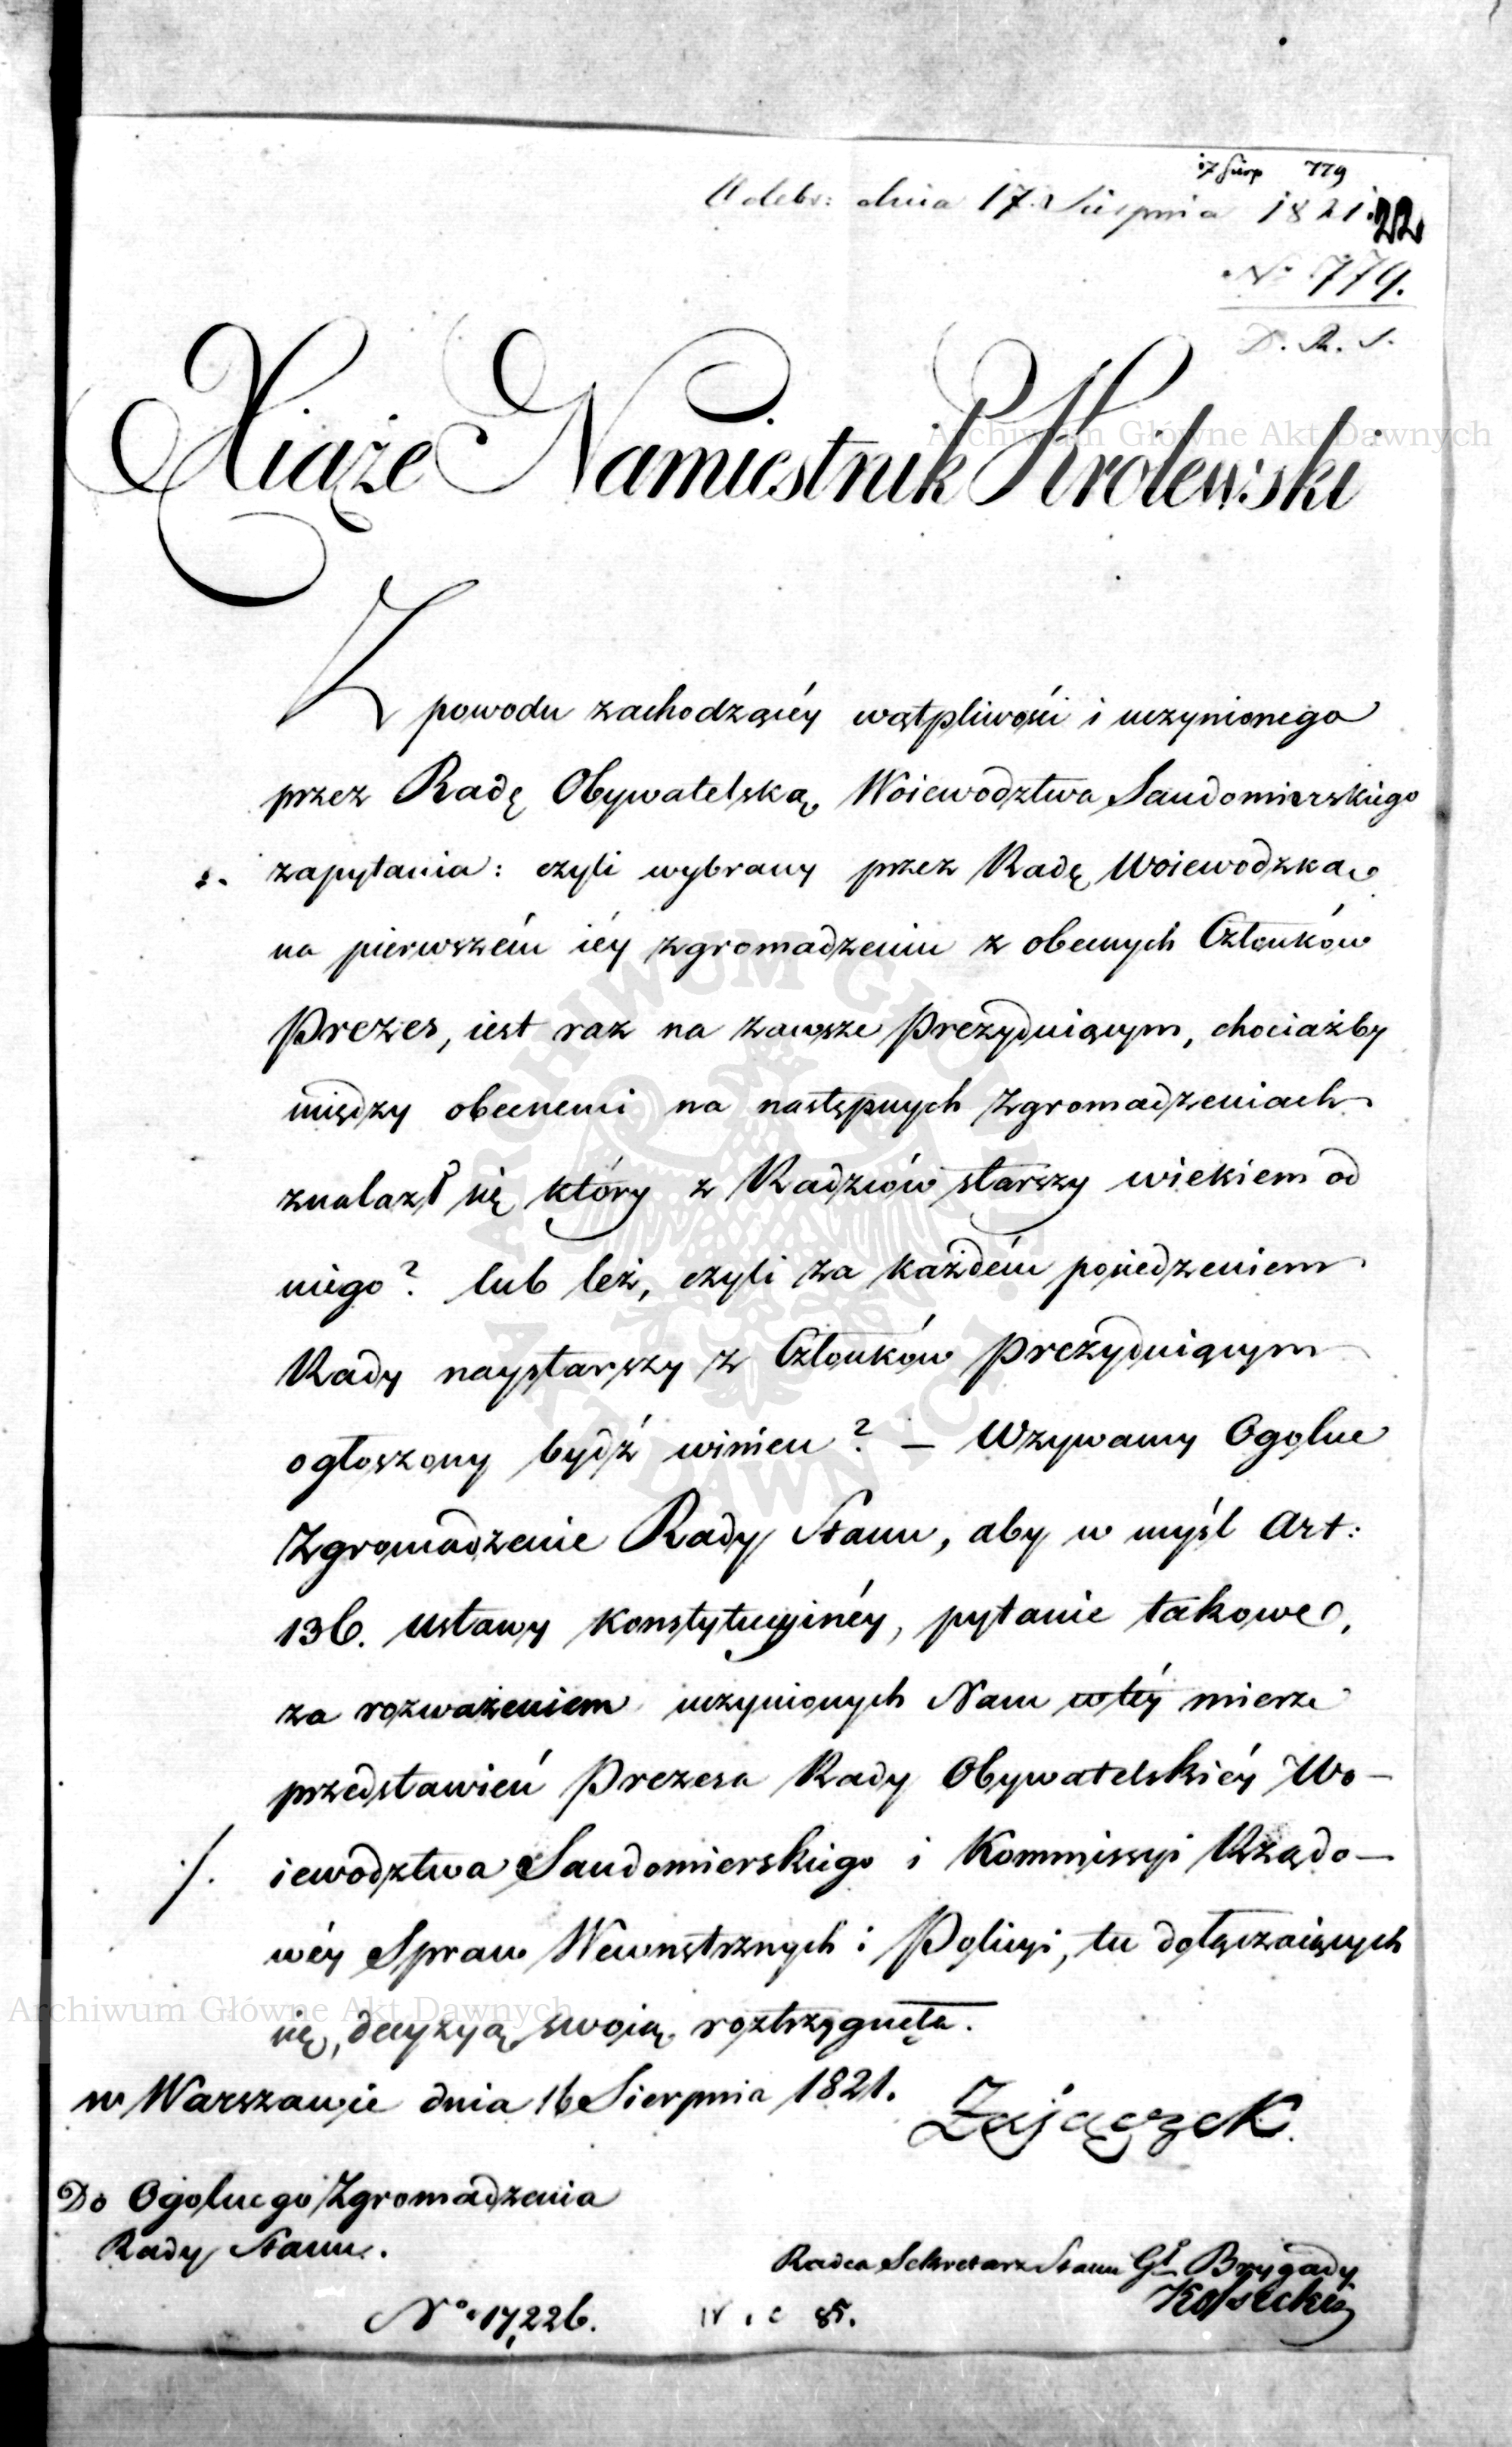 17 Sierp 779
Odebr: dnia 17. Sierpnia 1821. 22
No 779.
D. R. S.
Xiąże Namiestnik Krolewski
Archiwum Główne Akt Dawnych
Z powodu zachodzącéy wątpliwości i uczynionego
przez Radę Obywatelską Woiewodztwa Sandomierskiego
zapytania: czyli wybrany przez Radę Woiewodzką
na pierwszém iéy zgromadzeniu z obecnych Członków
Prezes, iest raz na zawsze Prezyduiącym, chociażby
między obecnemi na następnych zgromadzeniach
znalazł się który z Radzców starszy wiekiem od
niego? lub też, czyli za każdém posiedzeniem
Rady naystarszy z Członków Prezyduiącym
ogłoszony bydź winien? — Wzywamy Ogolne
Zgromadzenie Rady Stanu, aby w myśl Art:
136. Ustawy Konstytucyinéy, pytanie takowe,
za rozważeniem uczynionych Nam w téy mierze
przedstawień Prezesa Rady Obywatelskiéy Wo-
/. iewodztwa Sandomierskiego i Kommissyi Rządo-
wéy Spraw Wewnętrznych i Policyi, tu dołączaiących
się, decyzyą swoią roztrzygnęła.
Archiwum Główne Akt Dawnych
w Warszawie dnia 16 Sierpnia 1821.
Zajączek.
Do Ogolnego Zgromadzenia
Rady Stanu.
Radca Sekretarz Stanu Gł Brygady
Kossecki
No 17,226.
ARCHIWUM GŁÓWNE AKT DAWNYCH